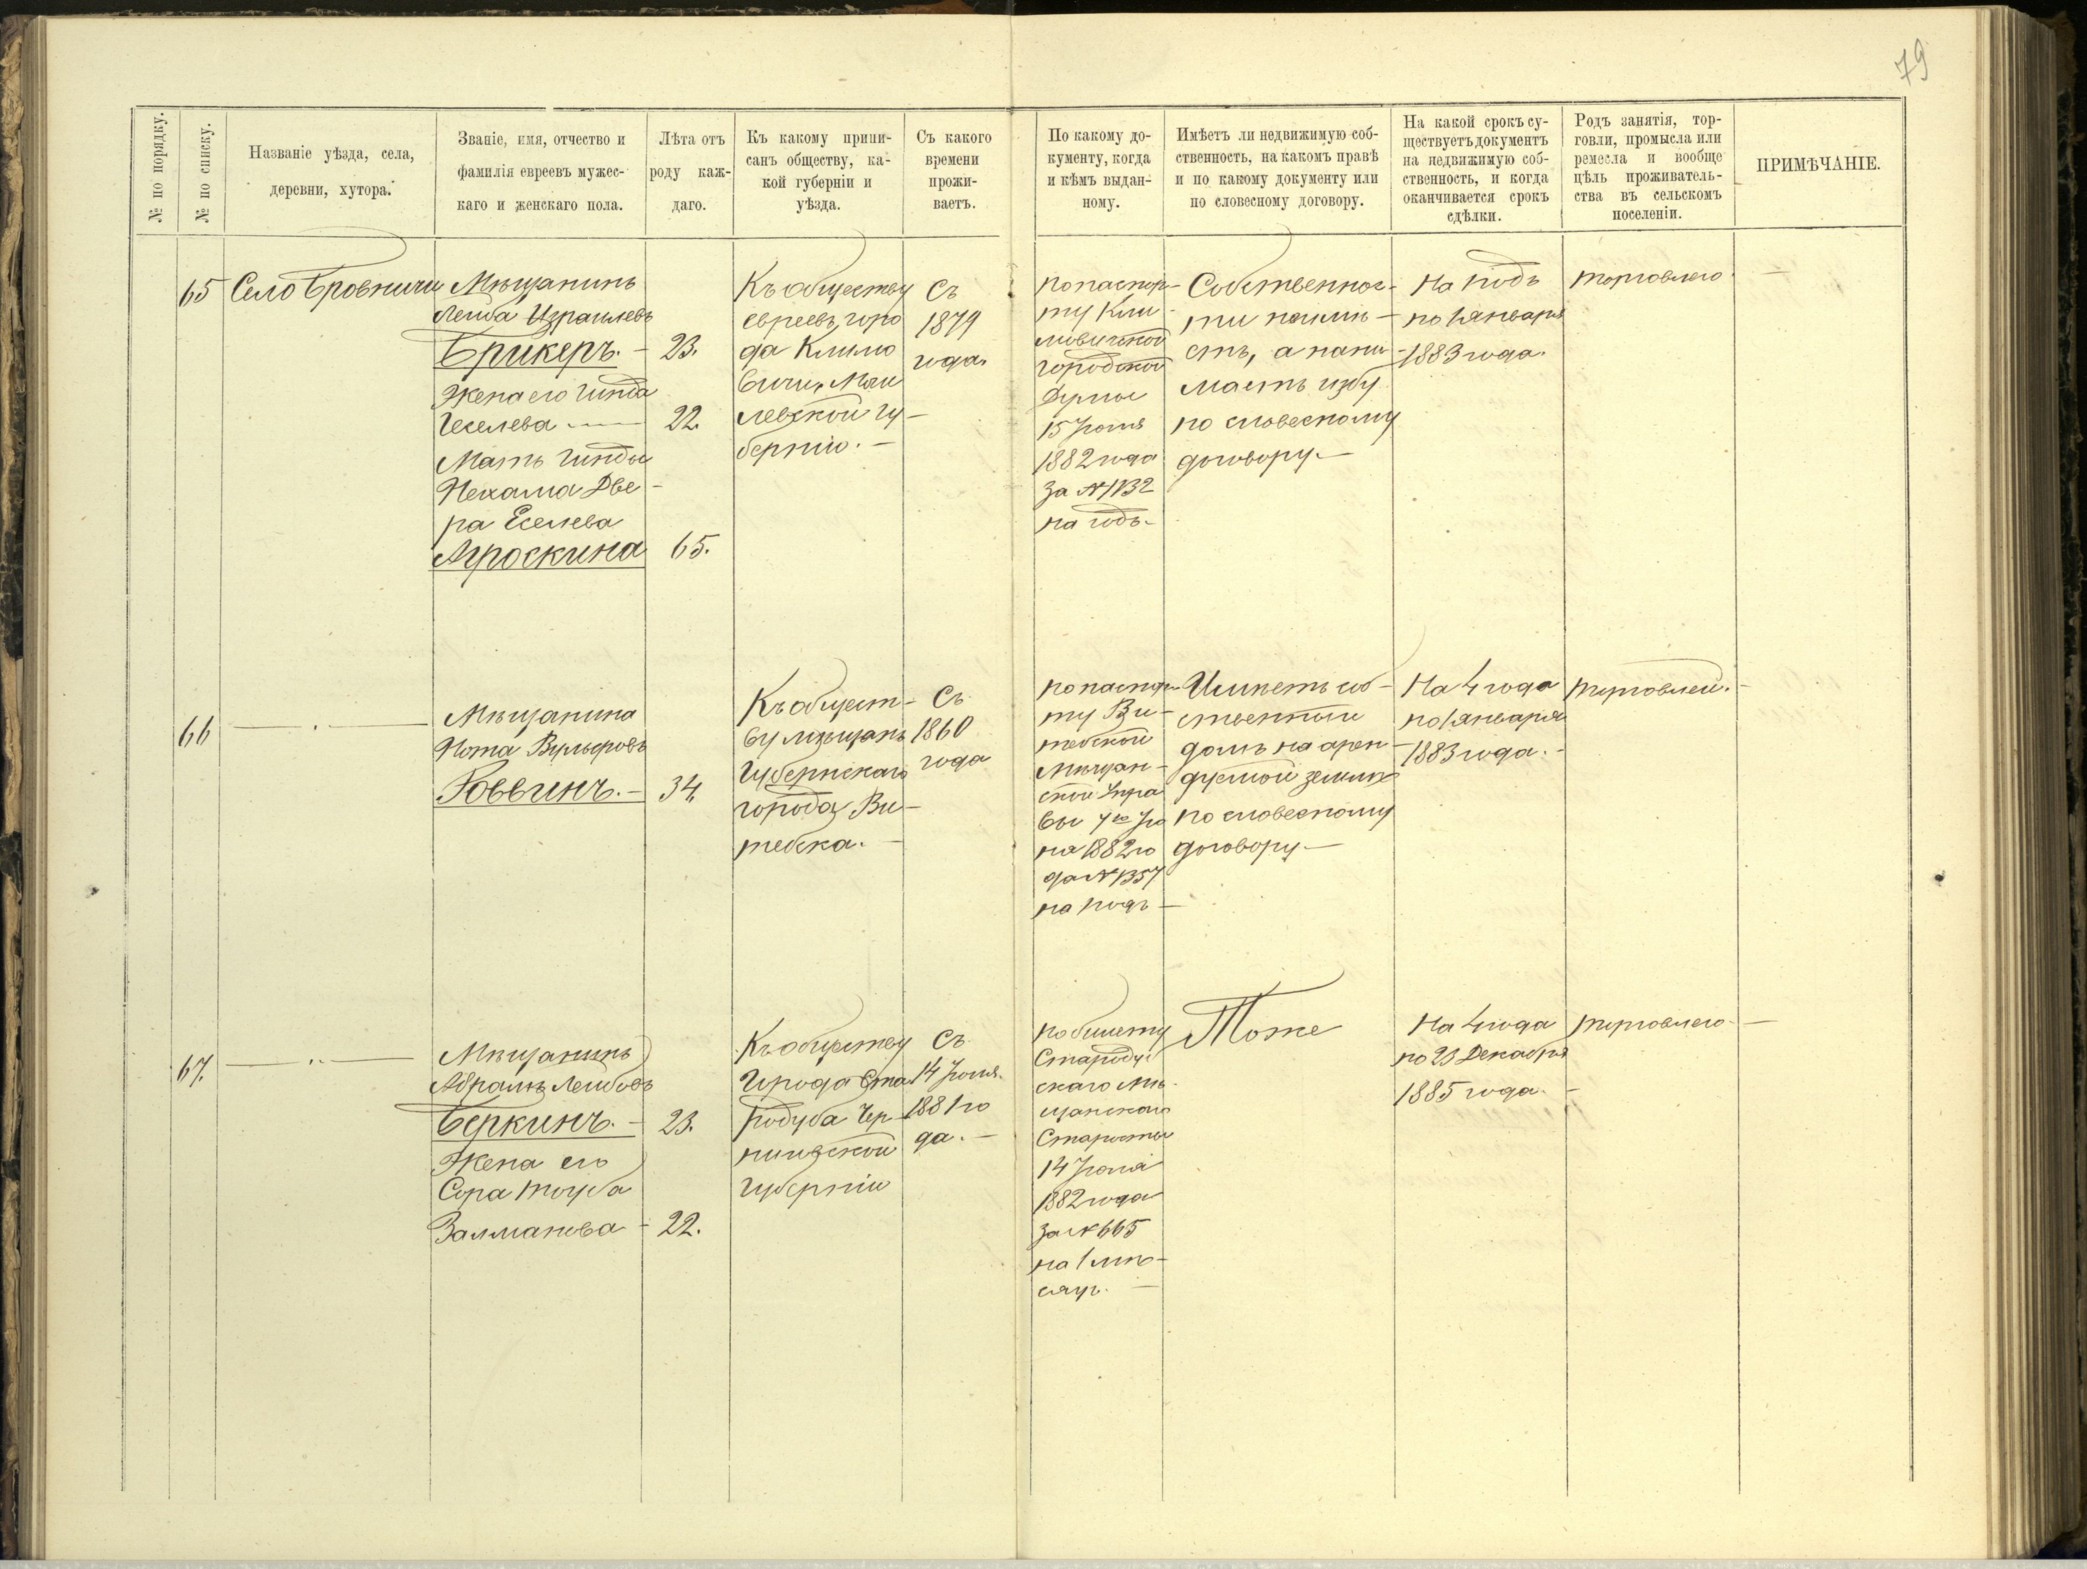 79
№ по порядку.
№ по списку.
Названіе уѣзда, села,
деревни, хутора.
Званіе, имя, отчество и
фамилія евреевъ мужес-
каго и женскаго пола.
Лѣта отъ
роду каж-
даго.
Къ какому припи-
санъ обществу, ка-
кой губерніи и
уѣзда.
Съ какого
времени
прожи-
ваетъ.
По какому до-
кументу, когда
и кѣмъ выдан-
ному.
Имѣетъ ли недвижимую соб-
ственность, на какомъ правѣ
и по какому документу или
по словесному договору.
На какой срокъ су-
ществуетъ документъ
на недвижимую соб-
ственность, и когда
оканчивается срокъ
сдѣлки.
Родъ занятія, тор-
говли, промысла или
ремесла и вообще
цѣль проживатель-
ства въ сельскомъ
поселеніи.
ПРИМѢЧАНІЕ.
65
Село Бровничи
Мѣщанинъ
Лейба Израилевъ
Брикеръ. –
Жена его Гинда
Геселева —
Мать Гинды
Нехама Две-
ра Еселева
Агроскина
23.
22.
65.
Къ обществу
евреевъ, горо
да Климо
вичи, Моги
левской гу-
берніи. –
Съ
1879
года.
по паспор-
ту Кли-
мовичской
городской
Думы
15 Іюня
1882 года
за № 1132
на годъ. –
Собственнос-
ти неимѣ-
етъ, а нани-
маетъ избу
по словесному
договору. –
На годъ
по 1 января
1883 года.
торговлею
—
66
— " —
Мѣщанина
Нота Вульфовъ
Роввинъ. –
34.
Къ общест-
ву мѣщанъ
Губернскаго
города Ви-
тебска. –
Съ
1860
года
по паспор-
ту Ви-
тебской
Мѣщан-
ской Упра
вы 7го Ію
ня 1882 го
да № 1357
на годъ –
Имѣетъ соб-
ственный
домъ на арен-
дуемой землѣ
по словесному
договору –
На 4 года
по 1 января
1883 года. –
торговлей. –
67.
— " —
Мѣщанинъ
Абрамъ Лейбовъ
Беркинъ. –
Жена его
Сора Тоуба
Залманова –
23.
22.
Къ обществу
Города Ста
родуба Чер-
ниговской
Губерніи
Съ
14 Іюня.
1881 го
да. –
по билету
Стародуб
скаго мѣ-
щанскаго
Старосты
14 Іюня
1882 года
за № 665
на 1 мѣ-
сяцъ. –
Тоже
На 4 года
по 23 Декабря
1885 года. –
торговлею –